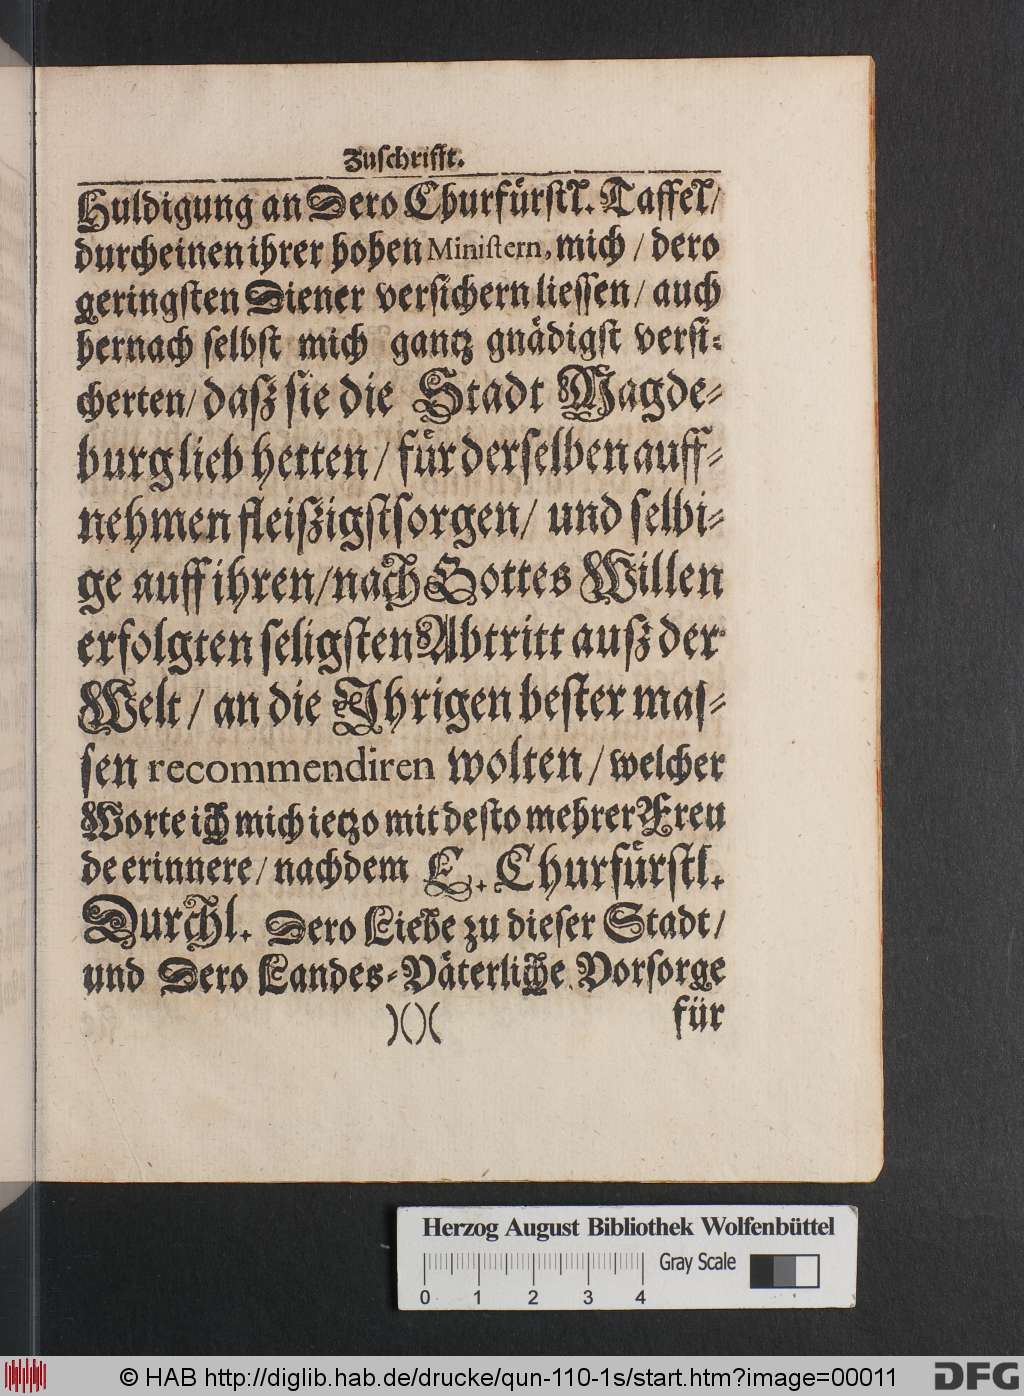 Zuschrifft.
Huldigung an Dero Churfürstl. Taffel/
durch einen ihrer hohen Ministern, mich / dero
geringsten Diener versichern liessen/ auch
hernach selbst mich gantz gnädigst versi-
cherten/ daß sie die Stadt Magde-
burg lieb hetten / für derselben auff-
nehmen fleißigst sorgen/ und selbi-
ge auff ihren/ nach Gottes Willen
erfolgten seligsten Abtritt auß der
Welt / an die Ihrigen bester mas-
sen recommendiren wolten / welcher
Worte ich mich ietzo mit desto mehrer Freu
de erinnere / nachdem E. Churfürstl.
Durchl. Dero Liebe zu dieser Stadt/
und Dero Landes-Väterliche Vorsorge
)()( für
Herzog August Bibliothek Wolfenbüttel
Gray Scale
0 1 2 3 4
© HAB http://diglib.hab.de/drucke/qun-110-1s/start.htm?image=00011
DFG